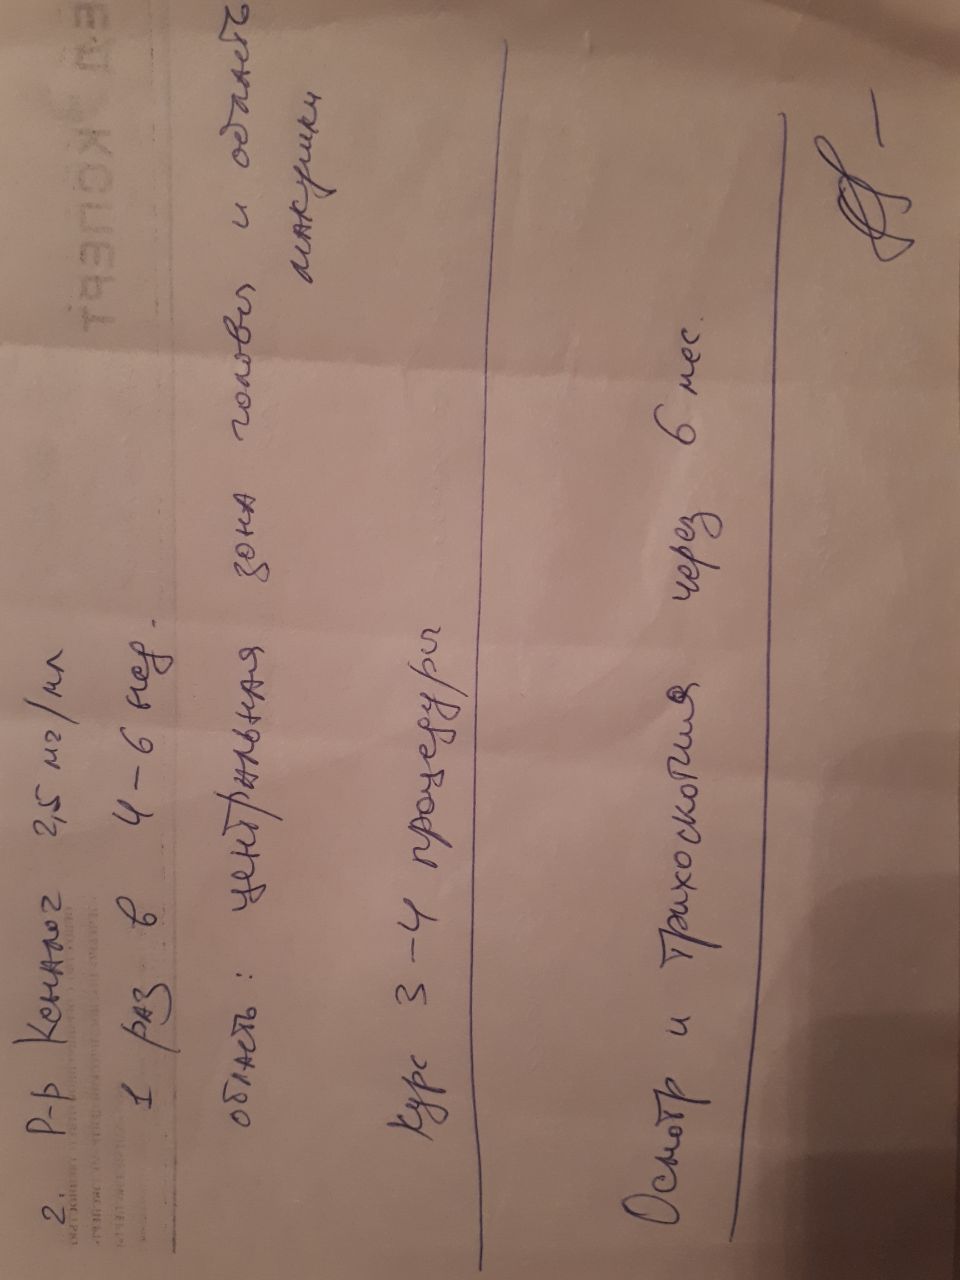 2. Р-р Кеналог 2,5 мг/мл
1 раз в 4-6 нед.
область: центральная зона головы и область
макушки
Курс 3-4 процедуры
Осмотр и трихоскопия через 6 мес.